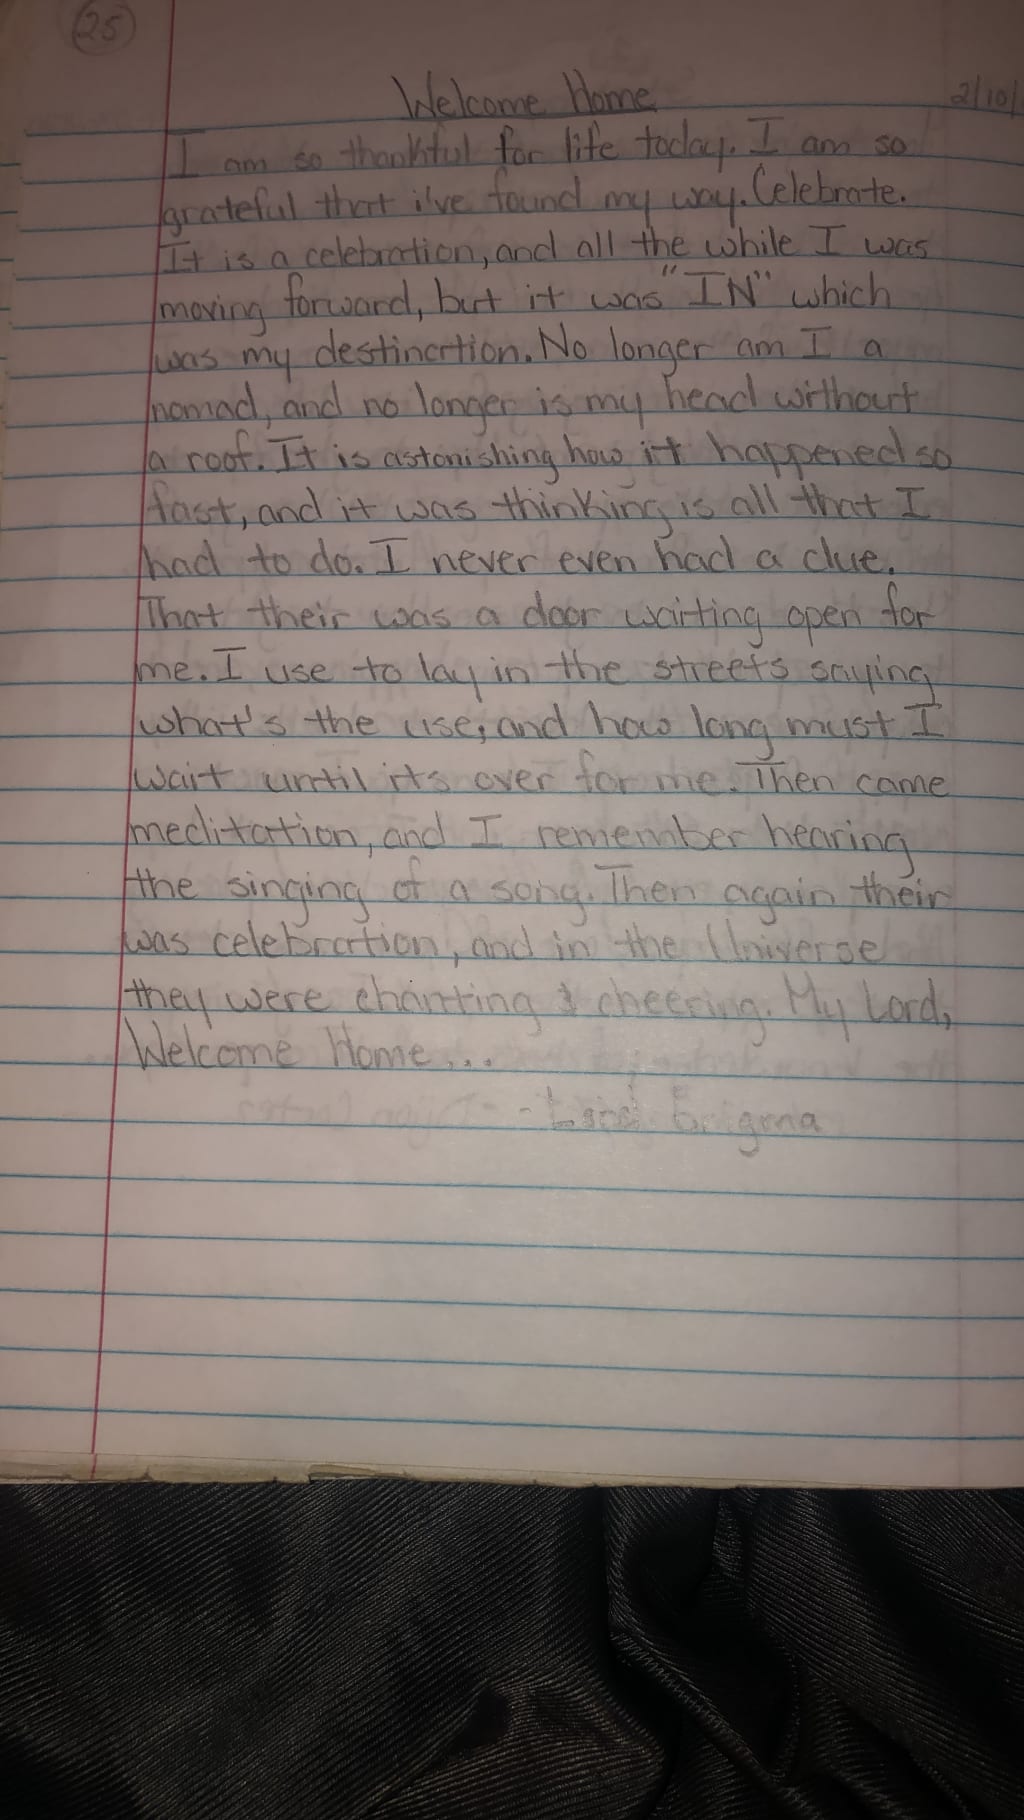 25
Welcome Home
2/10/
I am so thankful for life today. I am so
grateful that i've found my way. Celebrate.
It is a celebration, and all the while I was
moving forward, but it was "IN" which
was my destination. No longer am I a
nomad, and no longer is my head without
a roof. It is astonishing how it happened so
fast, and it was thinking is all that I
had to do. I never even had a clue.
That their was a door waiting open for
me. I use to lay in the streets saying
what's the use, and how long must I
wait until its over for me. Then came
meditation, and I remember hearing
the singing of a song. Then again their
was celebration, and in the Universe
they were chanting & cheering. My Lord,
Welcome Home...
- Lord